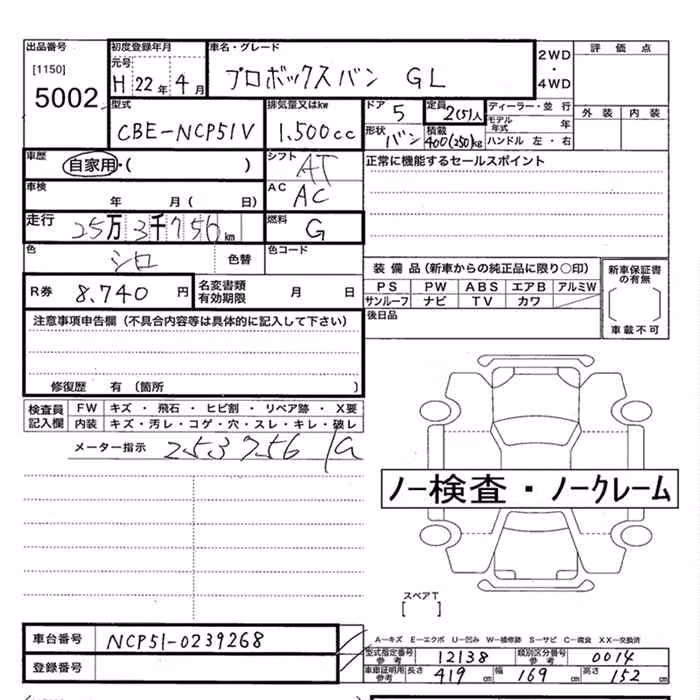 出品番号 初度登録年月 車名・グレード 2WD・4WD 評価点
[1150] 元号
5002 H 22年 4月 プロボックスバン GL
型式 排気量又はkw ドア 5 定員 2(5)人 ディーラー・並行 外装 内装
CBE-NCP51V 1.500cc 形状 バン 積載 400(250)kg モデル年式 年
ハンドル 左・右
車歴 自家用・( ) シフト AT 正常に機能するセールスポイント
車検 年 月( 日) AC AC
走行 25万3千756km 燃料 G
色 シロ 色替 色コード
装備品(新車からの純正品に限り○印) 新車保証書の有無
R券 8.740円 名変書類有効期限 月 日 PS PW ABS エアB アルミW
サンルーフ ナビ TV カワ
注意事項申告欄(不具合内容等は具体的に記入して下さい) 後日品 車載不可
修復歴 有(箇所 )
検査員記入欄 FW キズ・飛石・ヒビ割・リペア跡・X要
内装 キズ・汚レ・コゲ・穴・スレ・キレ・破レ
メーター指示 253756
ノー検査・ノークレーム
スペアT
[ ]
車台番号 NCP51-0239268 A-キズ E-エクボ U-凹み W-補修跡 S-サビ C-腐食 XX-交換済
登録番号 型式指定番号 参考 12138 類別区分番号 参考 0014
車庫証明用 参考 長さ 419cm 幅 169cm 高さ 152cm